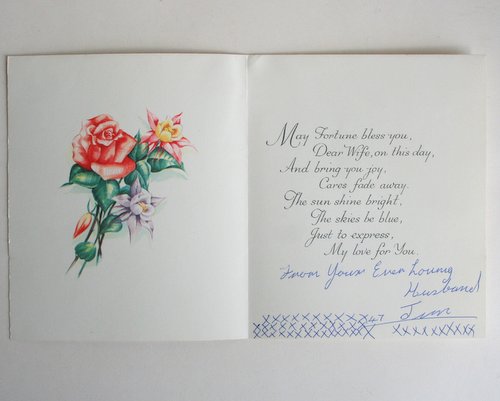 May Fortune bless you,
Dear Wife, on this day,
And bring you joy,
Cares fade away.
The sun shine bright,
The skies be blue,
Just to express,
My love for You.
From Your Ever Loving
Husband
Jim
47